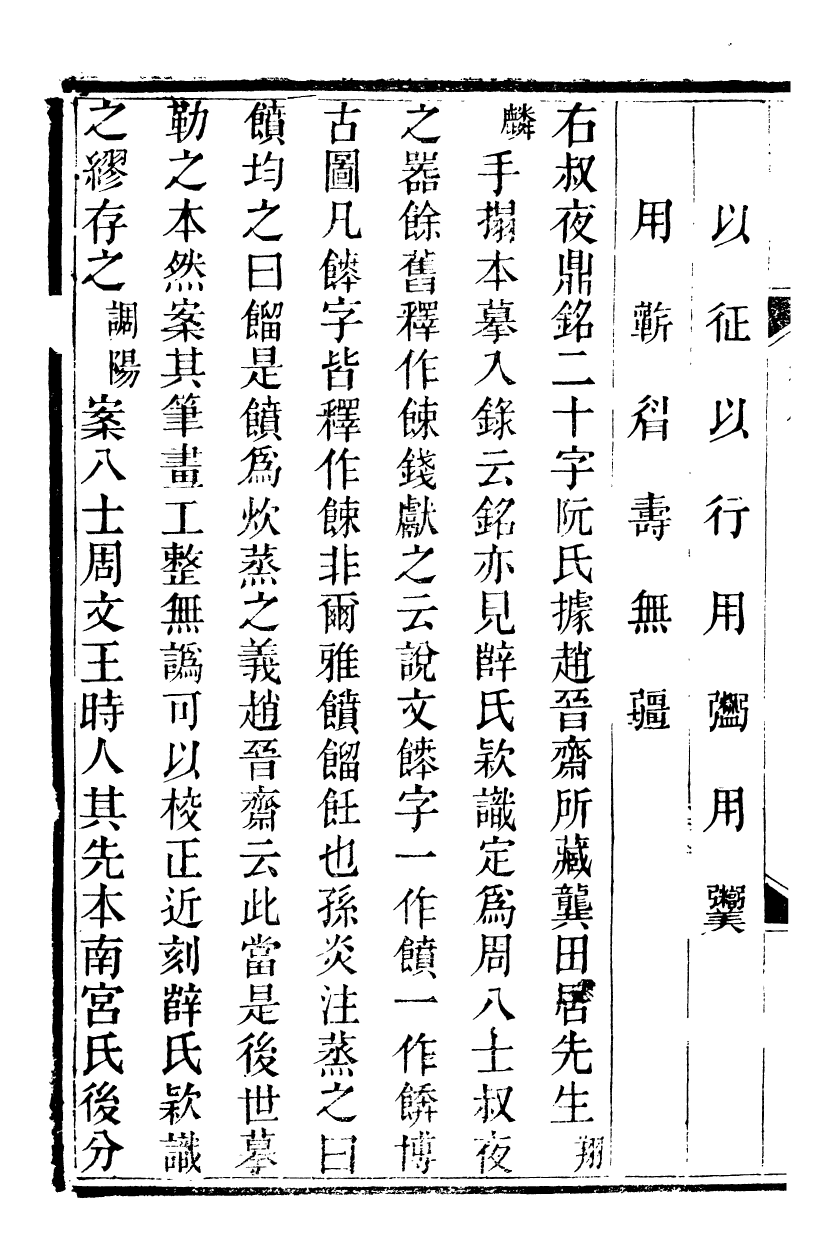 以征以行用鬻用𩱧
用蘄眉壽無疆
右叔夜鼎銘二十字阮氏據趙晉齋所藏龔田居先生翔
麟手搨本摹入錄云銘亦見薛氏欵識定爲周八士叔夜
之器餘舊釋作餗錢獻之云說文䭯字一作饙一作餴博
古圖凡䭯字皆釋作餗非爾雅饙餾飪也孫炎注蒸之曰
饙均之曰餾是饙爲炊蒸之義趙晉齋云此當是後世摹
勒之本然案其筆畫工整無譌可以校正近刻薛氏欵識
之繆存之調陽案八士周文王時人其先本南宮氏後分